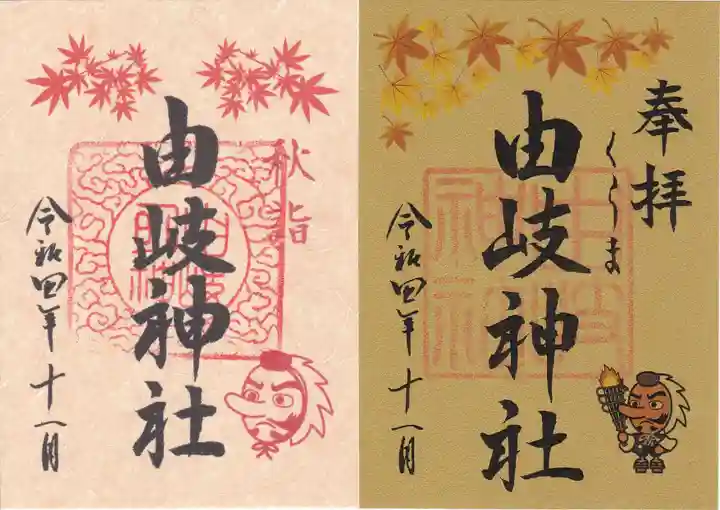 秋詣
由岐神社
令和四年十一月
奉拝
くらま
由岐神社
令和四年十一月